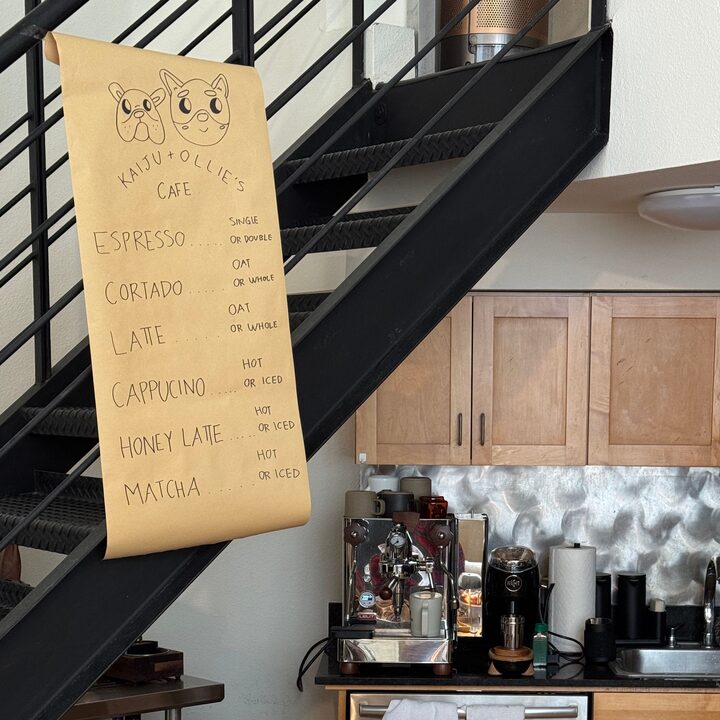 KAIJU + OLLIE'S
CAFE
SINGLE
ESPRESSO ..... OR DOUBLE
OAT
CORTADO ...... OR WHOLE
OAT
LATTE ...... OR WHOLE
HOT
CAPPUCINO ..... OR ICED
HOT
HONEY LATTE ..... OR ICED
HOT
MATCHA ........ OR ICED